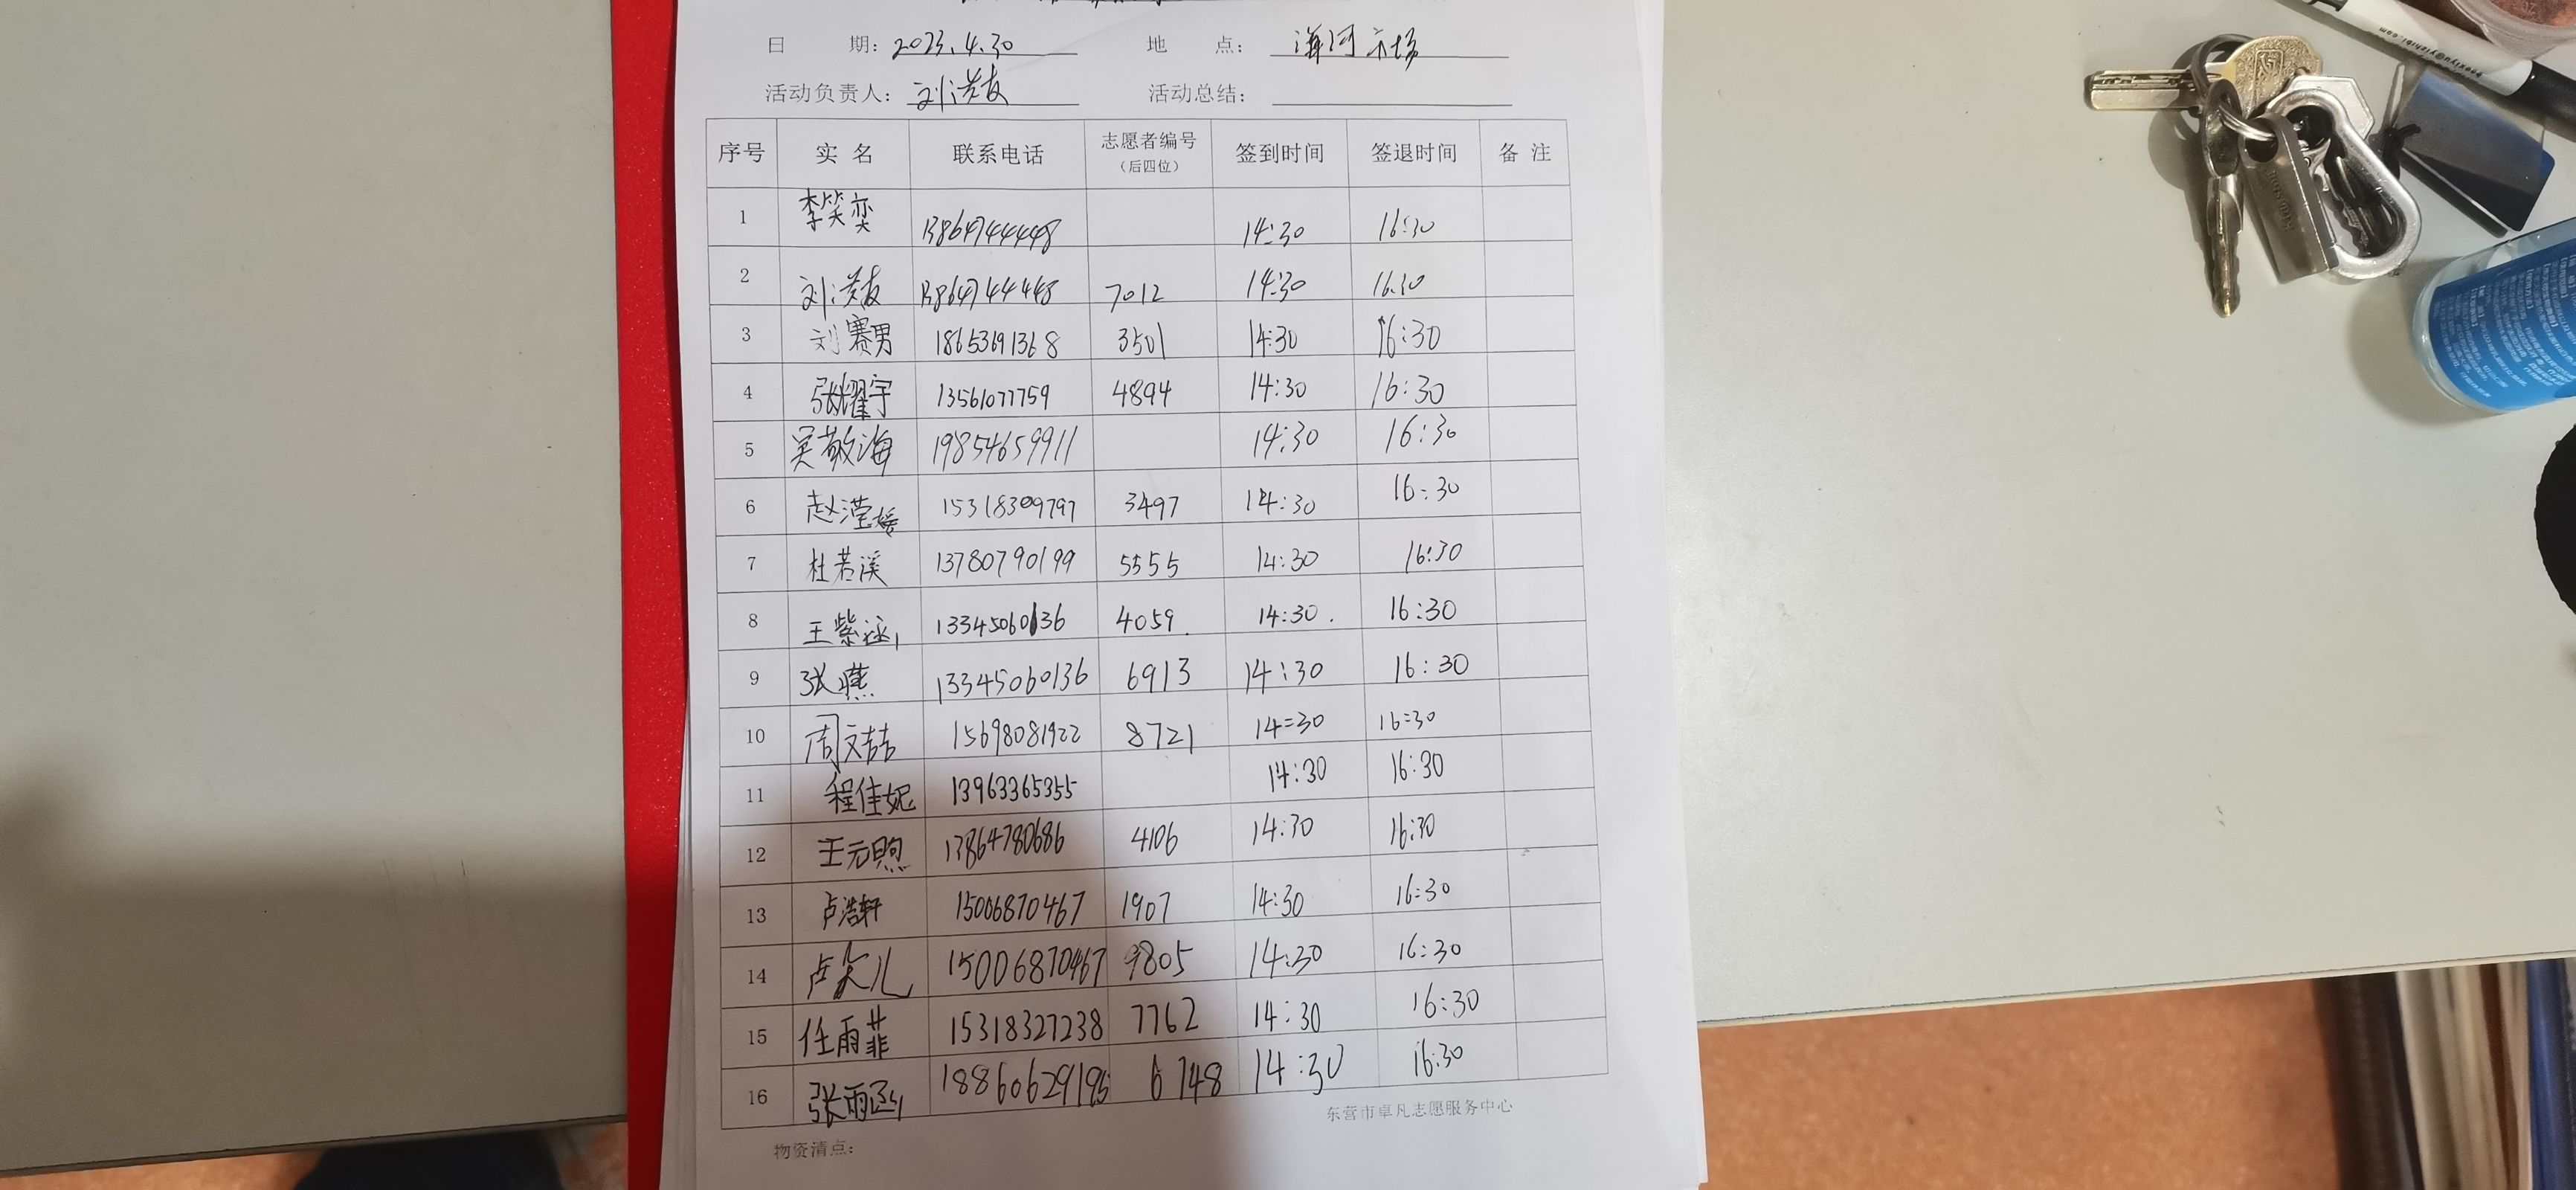 日 期: 2023.4.30 地 点: 海河市场
活动负责人: 刘洪友 活动总结:
序号 实 名 联系电话 志愿者编号(后四位) 签到时间 签退时间 备 注
1 李笑奕 13864744448 14:30 16:30
2 刘洪友 13864744448 7012 14:30 16:30
3 刘赛男 18653691368 3501 14:30 16:30
4 张耀宇 13561077759 4894 14:30 16:30
5 吴敬海 19854659911 14:30 16:30
6 赵滢媛 15318309797 3497 14:30 16:30
7 杜若溪 13780790199 5555 14:30 16:30
8 王紫涵 13345060136 4059 14:30 16:30
9 张燕 13345060136 6913 14:30 16:30
10 周文喆 15698081922 8721 14:30 16:30
11 程佳妮 13963365355 14:30 16:30
12 王元煦 13864780686 4106 14:30 16:30
13 卢浩轩 15006870467 1907 14:30 16:30
14 卢笑儿 15006870467 9805 14:30 16:30
15 任雨菲 15318327238 7762 14:30 16:30
16 张雨函 6748 14:30 16:30
东营市卓凡志愿服务中心
物资清点: